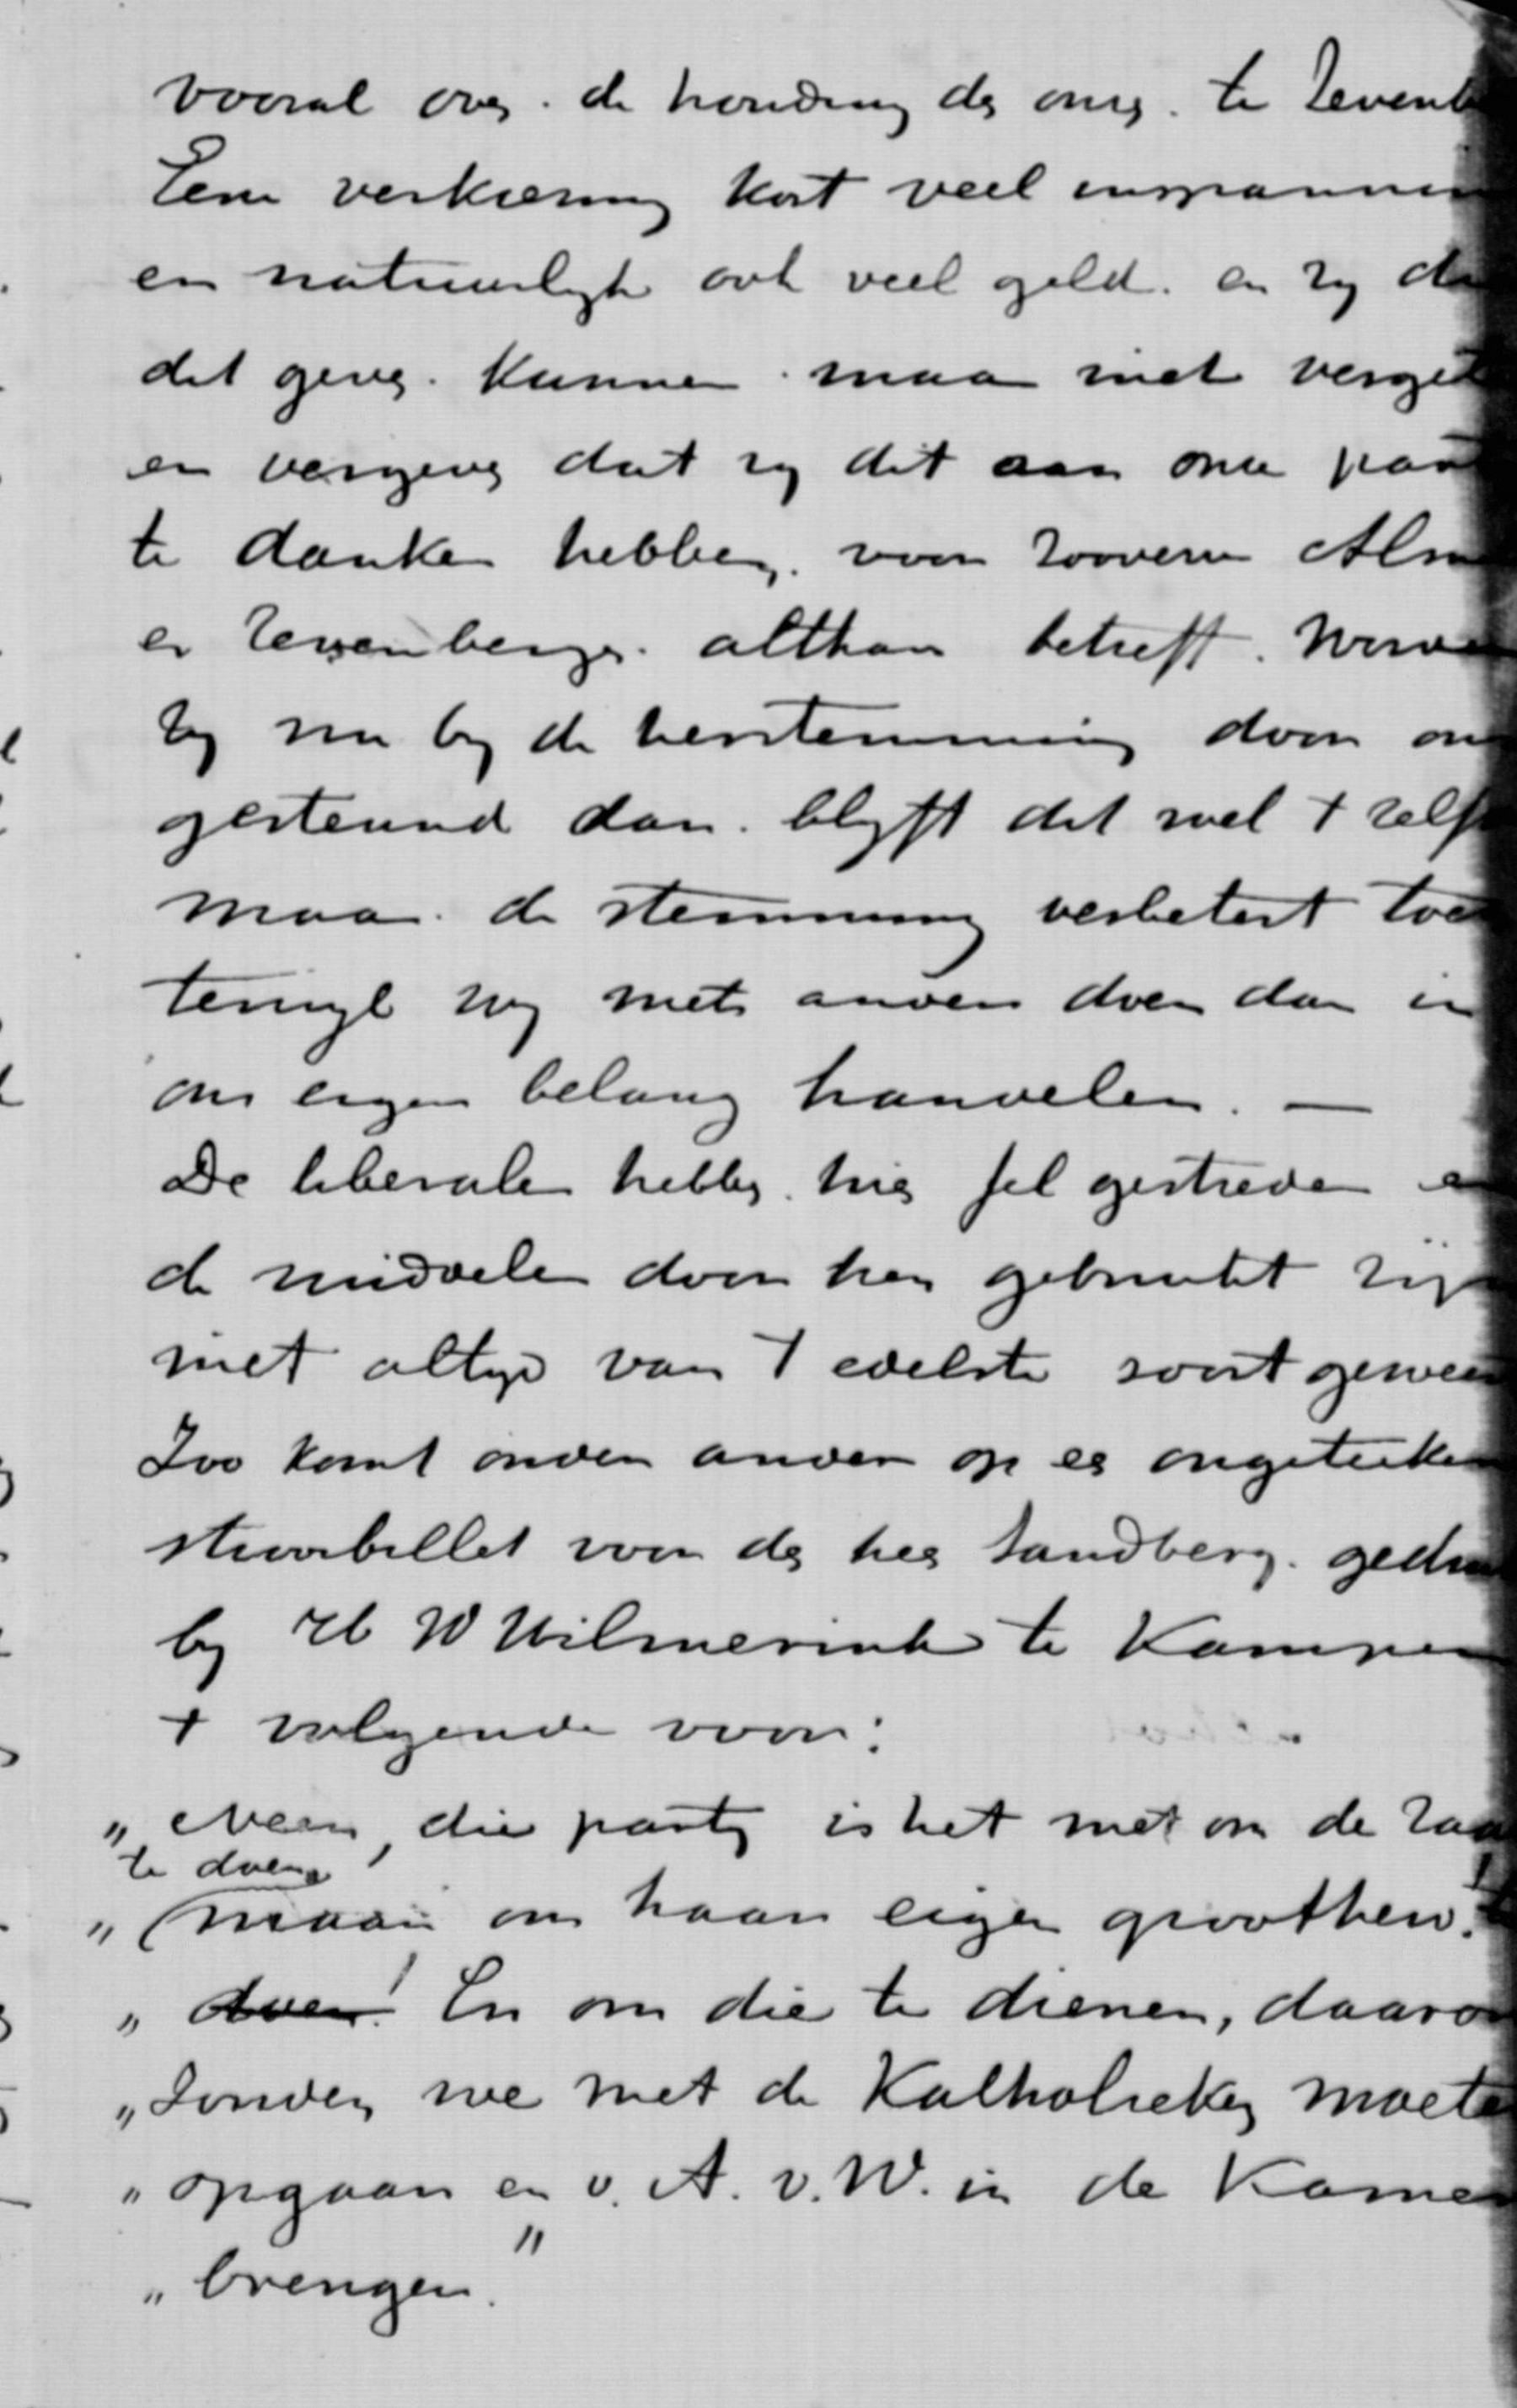 vooral over de houding der onze te Zevenb
Eene verkiezing kost veel inspannin
en natuurlijk ook veel geld. en zij di
dit geven kunnen maar niet verget
en vergeven dat zij dit aan onze part
te danken hebben. voor zoovere Alm
en Zevenbergen althans betreft. Worden
zij nu bij de herstemming door on
gesteund dan blijft dit wel 't zelf
maar de stemming verbetert toe
terwijl wij niets anders doen dan in
ons eigen belang handelen. —
De liberalen hebben hier fel gestreden en
de middelen door hen gebruikt zijn
niet altijd van 't edelste soort gewee
Zoo komt onder anderen op een ongeteeken
strooibillet voor den heer Sandberg. gedru
bij H W Wilmerink te Kampen
't volgende voor:
„ Neen, die partij is het niet om de zaa
te doen
„ maar om haar eigen grootheid.
„ doen! En om die te dienen, daaro
„ zouden we met de Katholieken moete
„ opgaan en v. A. v. W. in de Kamer
„ brengen."